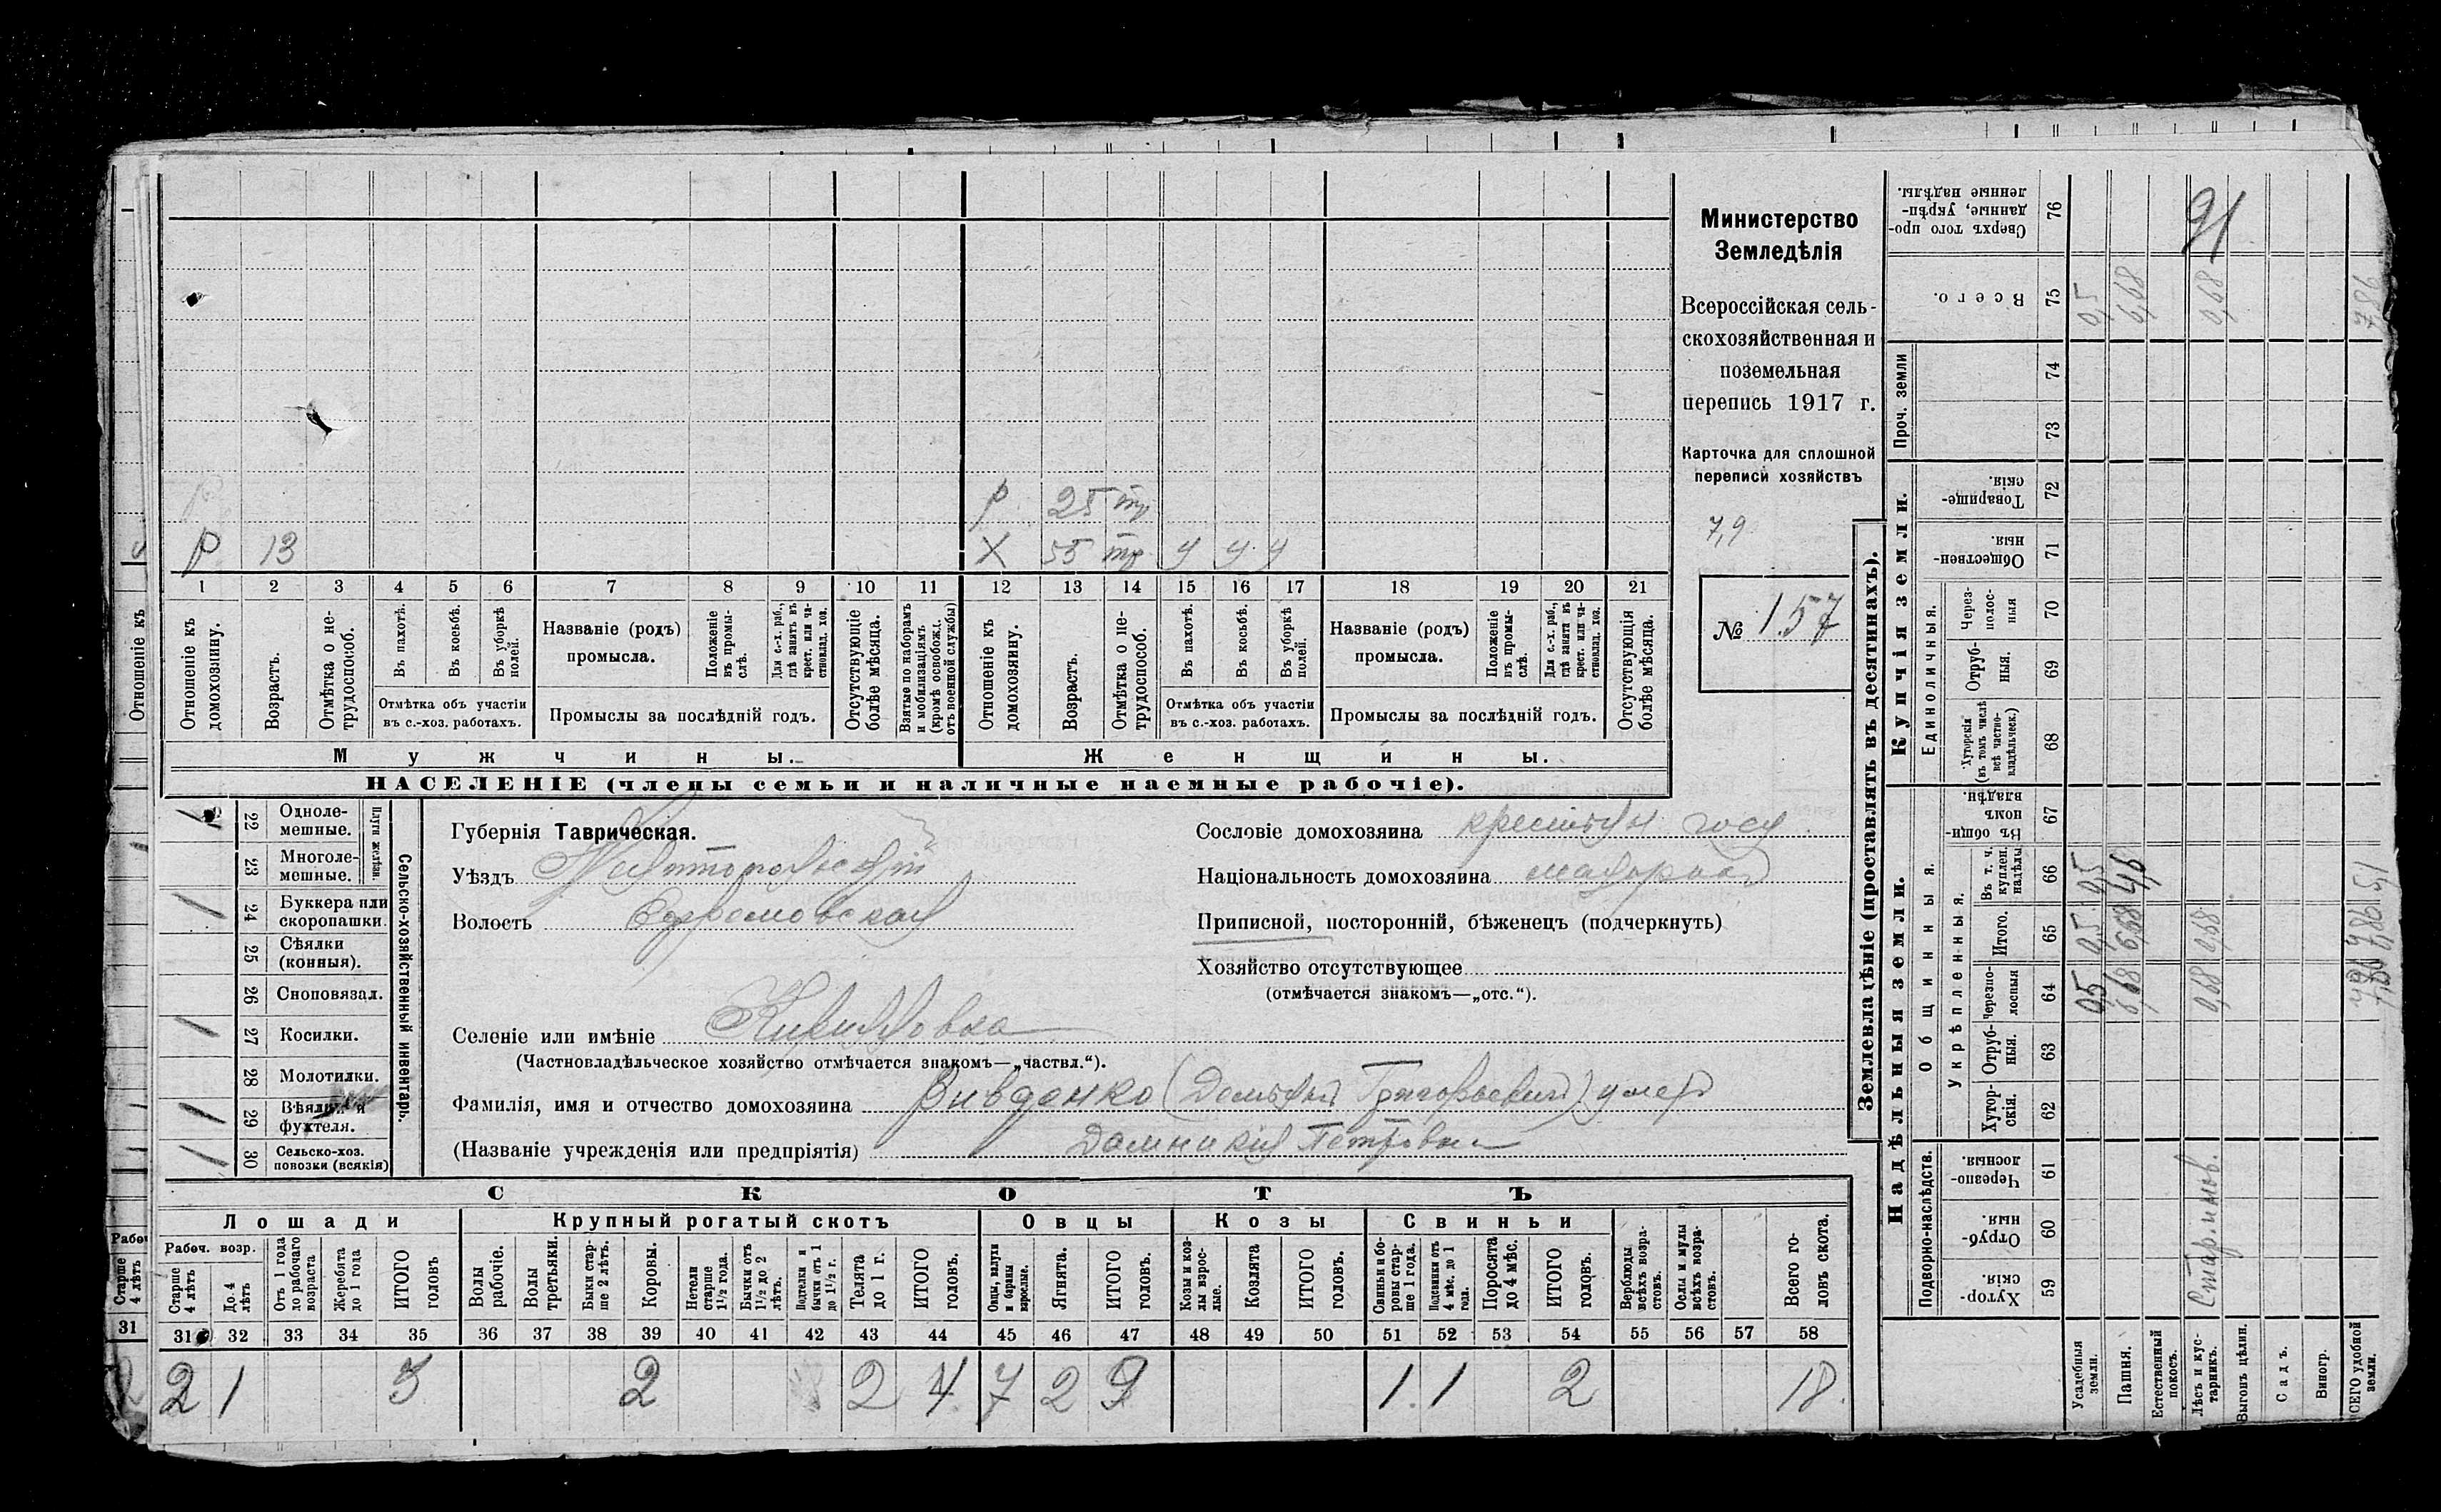 Министерство
Земледѣлія
Всероссійская сель-
скохозяйственная и
поземельная
перепись 1917 г.
Карточка для сплошной
переписи хозяйствъ
7,9
№ 157
Р 25 тр
Р 13 Х 55 тр у у у
1 2 3 4 5 6 7 8 9 10 11 12 13 14 15 16 17 18 19 20 21
Отношеніе къ домохозяину.
Возрастъ.
Отмѣтка о не-трудоспособ.
Въ пахотѣ.
Въ косьбѣ.
Въ уборкѣ полей.
Отмѣтка объ участіи
въ с.-хоз. работахъ.
Названіе (родъ)
промысла.
Положеніе въ промы-слѣ.
Для с.-х. раб., гдѣ занятъ въ крест. или ча-стновлад. хоз.
Промыслы за послѣдній годъ.
Отсутствующіе болѣе мѣсяца.
Взятые по наборамъ и мобилизаціямъ (кромѣ освобожд. отъ военной службы)
Отношеніе къ домохозяину.
Возрастъ.
Отмѣтка о не-трудоспособ.
Въ пахотѣ.
Въ косьбѣ.
Въ уборкѣ полей.
Отмѣтка объ участіи
въ с.-хоз. работахъ.
Названіе (родъ)
промысла.
Положеніе въ промы-слѣ.
Для с.-х. раб., гдѣ занята въ крест. или ча-стновлад. хоз.
Промыслы за послѣдній годъ.
Отсутствующія болѣе мѣсяца.
Мужчины.
Женщины.
НАСЕЛЕНІЕ (члены семьи и наличные наемные рабочіе).
Сельско-хозяйственный инвентарь.
Плуги желѣзн.
22 Одноле-мешные.
23 Многоле-мешные.
24 Буккера или скоропашки.
25 Сѣялки (конныя).
26 Сноповязал.
27 Косилки.
28 Молотилки.
29 Вѣялки и фухтеля.
30 Сельско-хоз. повозки (всякія)
Губернія Таврическая.
Уѣздъ Мелитопольскій
Волость Ефремовская
Селеніе или имѣніе Кирилловка
(Частновладѣльческое хозяйство отмѣчается знакомъ—„частвл.“).
Фамилія, имя и отчество домохозяина Вивденко (Демьянъ Григорьевичъ) умеръ
(Названіе учрежденія или предпріятія) Домникія Петровна
Сословіе домохозяина крестьян
Національность домохозяина малоросс
Приписной, посторонній, бѣженецъ (подчеркнуть)
Хозяйство отсутствующее
(отмѣчается знакомъ—„отс.“).
СКОТЪ
Лошади Крупный рогатый скотъ Овцы Козы Свиньи
Рабоч. возр.
Старше 4 лѣтъ
До 4 лѣтъ
Отъ 1 года до рабочаго возраста
Жеребята до 1 года
ИТОГО головъ
Волы рабочіе.
Волы третьяки.
Быки стар-ше 2 лѣтъ.
Коровы.
Нетели старше 1½ года.
Бычки отъ 1½ до 2 лѣтъ.
Подтелки и бычки отъ 1 до 1½ г.
Телята до 1 г.
ИТОГО головъ.
Овцы, валухи и бараны взрослые.
Ягнята.
ИТОГО головъ.
Козы и коз-лы взрос-лые.
Козлята
ИТОГО головъ.
Свиньи и бо-ровы стар-ше 1 года.
Подсвинки отъ 4 мѣс. до 1 года.
Поросята до 4 мѣс.
ИТОГО головъ.
Верблюды всѣхъ возра-стовъ.
Ослы и мулы всѣхъ возра-стовъ.
Всего го-ловъ скота.
31 32 33 34 35 36 37 38 39 40 41 42 43 44 45 46 47 48 49 50 51 52 53 54 55 56 57 58
2 1 3 2 2 4 7 2 9 1 1 2 18
Землевладѣніе (проставлять въ десятинахъ).
Надѣльныя земли.
Купчія земли.
Проч. земли
Подворно-наслѣдств.
Общинныя.
Укрѣпленныя.
Единоличныя.
Хутор-скія. 59
Отруб-ныя. 60
Черезпо-лосныя. 61
Хутор-скія. 62
Отруб-ныя. 63
Черезпо-лосныя 64
Итого. 65
Въ т. ч. куплен. надѣлы 66
Въ общин-номъ владѣн. 67
Хуторскія (въ томъ числѣ всѣ частно-владѣльческ.) 68
Отруб-ныя. 69
Через-полос-ныя 70
Обществен-ныя. 71
Товарище-скія. 72
73
74
Всего. 75
Сверхъ того про-данные, укрѣп-ленные надѣлы. 76
Усадебныя земли. 0,5 0,5 0,5 0,5
Пашня. 6,68 6,68 4,46 6,68
Естественный покосъ.
Лѣсъ и кус-тарникъ. 0,68 0,68 0,68
Выгонъ цѣлин.
Садъ.
Виногр.
ВСЕГО удобной земли. 7,86 7,86 7,86
91
Отношеніе къ
Старше 4 лѣтъ
31